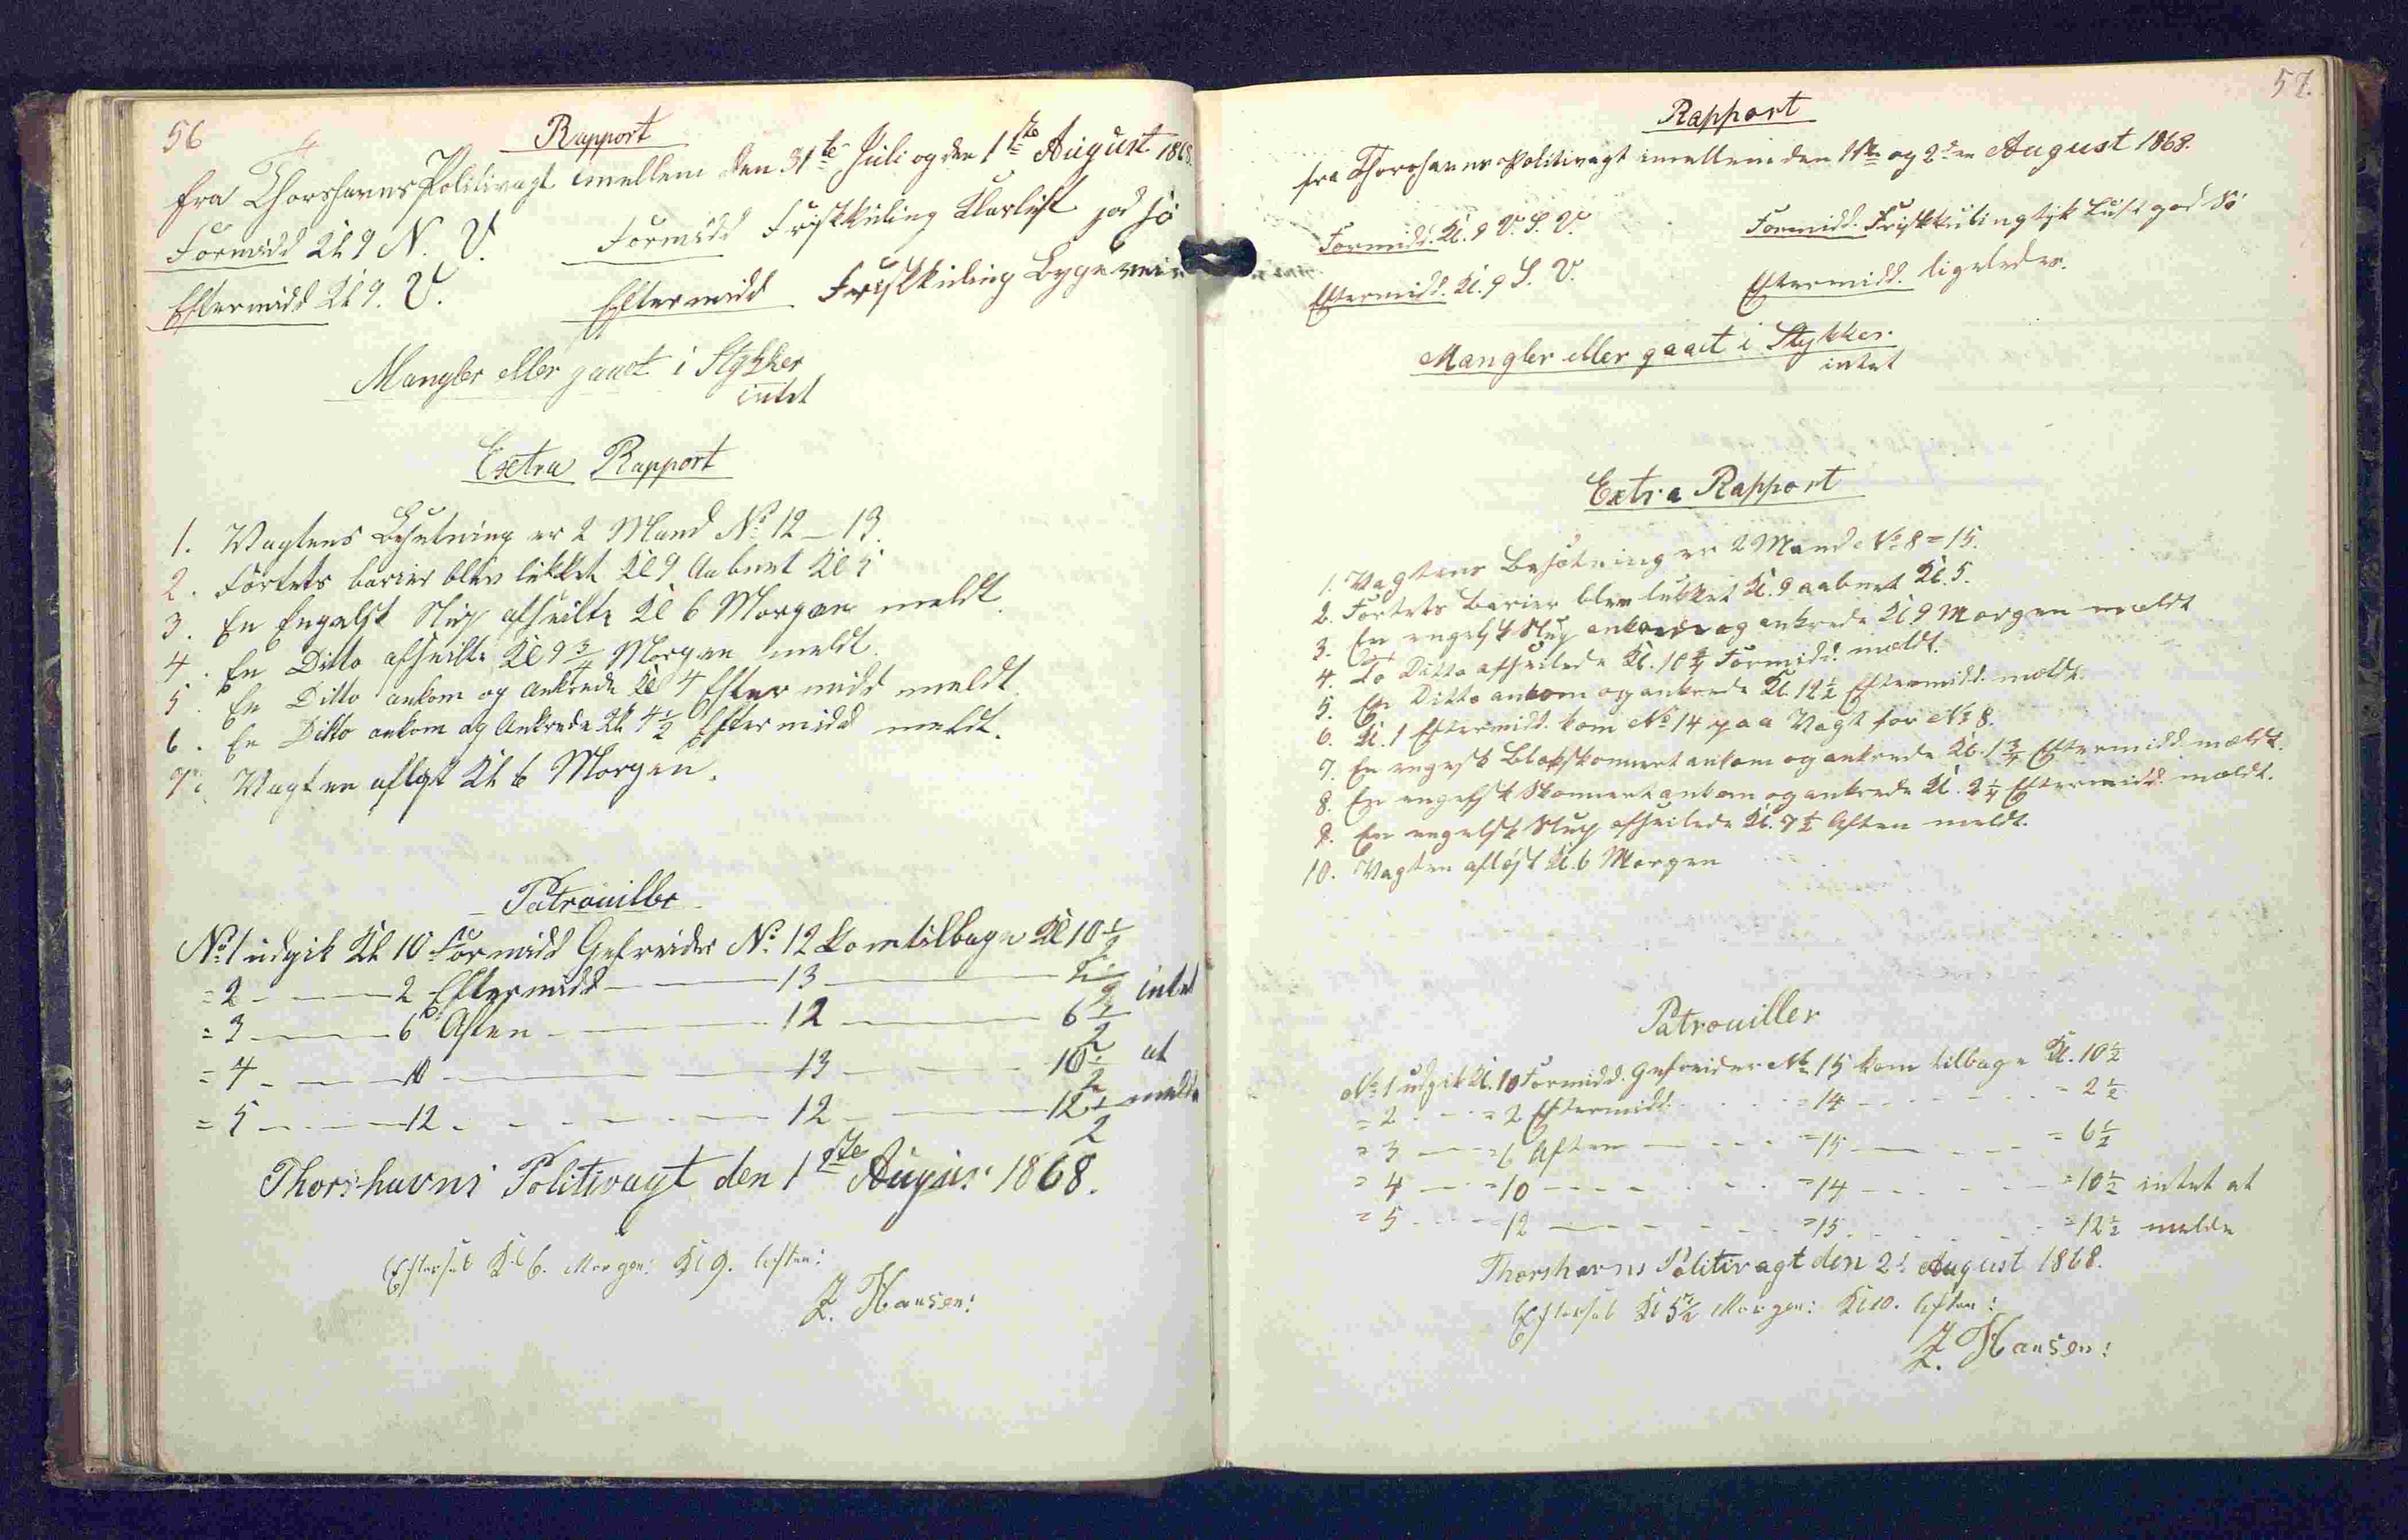 56
Rapport
fra Thorshavns Politivagt imellem den 31te Juli og den 1ste August 1868.
Formidd Kl 9 N. V. Formidd Friskkuling Klarluft god Sö
Eftermidd Kl 9. V. Eftermidd Friskkuling Byge
Mangler eller gaaet i Stykker
intet
Extra Rapport
1. Vagtens Besetning er 2 Mand No 12 – 13.
2. Fortets barier blev lukket Kl 9 Aabnet Kl 5
3. En Engelsk Slup afseilte Kl 6 Morgen meldt.
4. En Ditto afseilte Kl 9 3/4 Morgen meldt.
5. En Ditto ankom og Ankrede Kl 4 Eftermidd meldt.
6. En Ditto ankom og Ankrede Kl 4 1/2 Eftermidd meldt.
7. Vagten aflöst Kl 6 Morgen.
Patrouiller
No 1 udgik Kl 10 Formidd Gefreider No 12 kom tilbage Kl 10 1/2
= 2 — 2 Eftermidd — 13 — intet
= 3 — 6 Aften — 12 — 6 1/2
= 4 — 10 — 13 — 10 1/2 at
= 5 — 12 — 12 — 12 1/2 melde
Thorshavns Politivagt den 1ste August 1868.
Efterset Kl 6. Morgen: Kl 9. Aften:
J. Hansen:
57.
Rapport
fra Thorshavns Politivagt imellem den 1ste og 2den August 1868.
Formidd. Kl. 9 V. S. V. Formidd. Friskkuling tyk Luft god Sö
Eftermidd. Kl. 9 S. V. Eftermidd. ligeledes.
Mangler eller gaaet i Stykker
intet
Extra Rapport
1. Vagtens Besætning er 2 Mand No 8 = 15.
2. Fortets Barier blev lukket Kl. 9 aabnet Kl. 5.
3. En engelsk Slup ankom og ankrede Kl 9 Morgen meldt
4. To Ditto afseilede Kl. 10 3/4 Formidd. mældt.
5. En Ditto ankom og ankrede Kl. 12 1/2 Eftermidd. mældt.
6. Kl. 1 Eftermidd. kom No 14 paa Vagt for No 8.
7. En engelsk Skonnert ankom og ankrede Kl. 1 3/4 Eftermidd. mældt.
8. En engelsk Skonnert ankom og ankrede Kl. 2 1/4 Eftermidd. mældt.
9. En engelsk Slup afseilede Kl. 7 1/2 Aften meldt.
10. Vagten aflöst Kl. 6 Morgen
Patrouiller
No 1 udgik Kl. 10 Formidd. Gefreider No 15 kom tilbage Kl. 10 1/2
= 2 - - = 2 Eftermidd. - - = 14 - - = 2 1/2
= 3 — = 6 Aften — = 15 — = 6 1/2
= 4 — = 10 — = 14 — = 10 1/2 intet at
= 5 - - = 12 — = 15 - - = 12 1/2 melde
Thorshavns Politivagt den 2d August 1868.
Efterset Kl 5 1/2 Morgen: Kl 10. Aften:
J. Hansen: